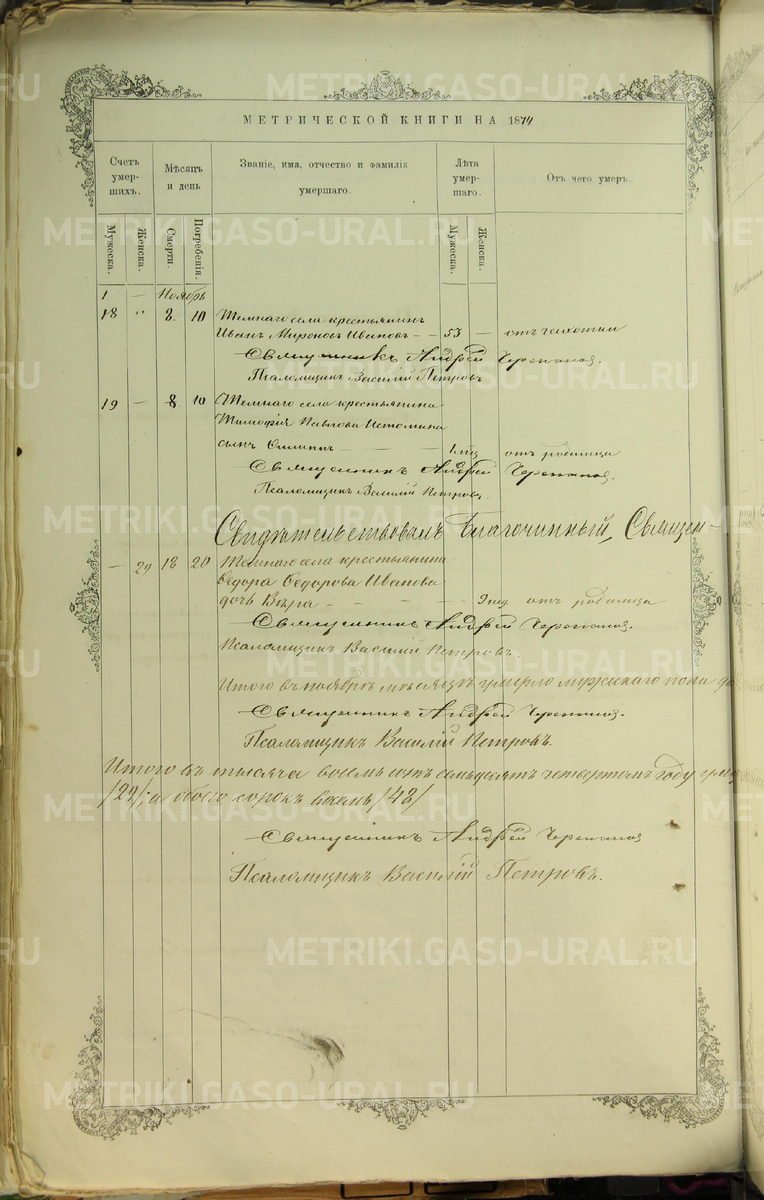 МЕТРИЧЕСКОЙ КНИГИ НА 1874
Счетъ умершихъ.
Мѣсяцъ и день
Званіе, имя, отчество и фамилія умершаго.
Лѣта умершаго.
Отъ чего умеръ.
Мужеска.
Женска.
Смерти.
Погребенія.
Мужеска.
Женска.
1 — Ноябрь
18 " 8. 10 села крестьянинъ
Иванъ Мироновъ Ивановъ — 53 — отъ чахотки
Священникъ Андрей Черепановъ.
Псаломщикъ Василій Петровъ
19 — 8 10 села крестьянина
Тимофія Павлова Истомина
сынъ отъ родимца
Священникъ Андрей Черепановъ.
Псаломщикъ Василій Петровъ.
Свидѣтельствовалъ Благочинный, Священ-
— 29 18 20 села крестьянина
Ѳедора Ѳедорова Иванова
дочь Вѣра — отъ родимца
Священникъ Андрей Черепановъ.
Псаломщикъ Василій Петровъ.
Итого въ ноябрѣ мѣсяцѣ умерло мужескаго пола
Священникъ Андрей Черепановъ.
Псаломщикъ Василій Петровъ.
Итого въ тысяча восемьсотъ семьдесятъ четвертомъ году
/29/; а обоего сорокъ восемь /48/
Священникъ Андрей Черепановъ
Псаломщикъ Василій Петровъ.
METRIKI.GASO-URAL.RU